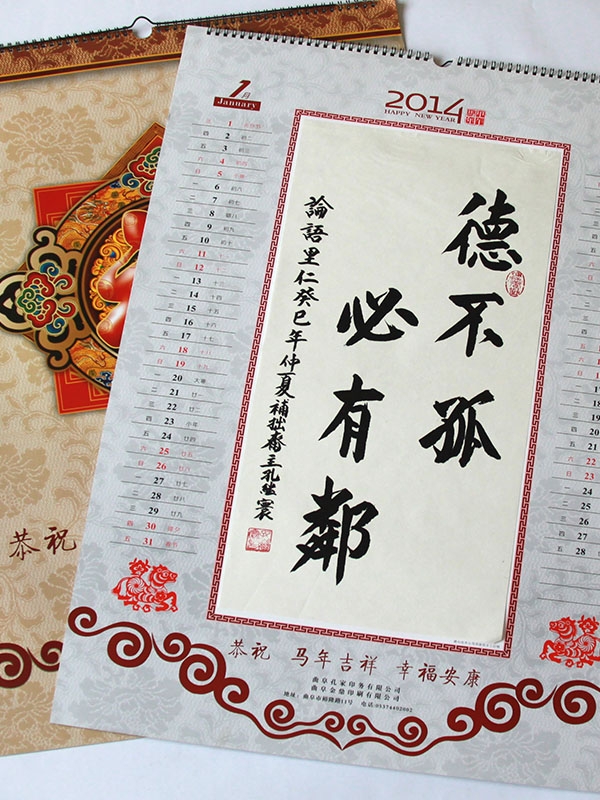 1月
January
2014
HAPPY NEW YEAR
三 1
四 2 初二
五 3 初三
六 4 初四
日 5 小寒
一 6 初六
二 7 初七
三 8 腊八
四 9 初九
五 10 初十
六 11 十一
日 12 十二
一 13 十三
二 14 十四
三 15 十五
四 16 十六
五 17 十七
六 18 十八
日 19 十九
一 20 大寒
二 21 廿一
三 22 廿二
四 23 小年
五 24 廿四
六 25 廿五
日 26 廿六
一 27 廿七
二 28 廿八
三 29 廿九
四 30 除夕
五 31 春节
德不孤
必有鄰
論語里仁癸巳年仲夏補拙齋主孔
恭祝 马年吉祥 幸福安康
曲阜孔家印务有限公司
曲阜金鼎印刷有限公司
地址：曲阜市裕隆路11号 电话:05374402002
恭祝